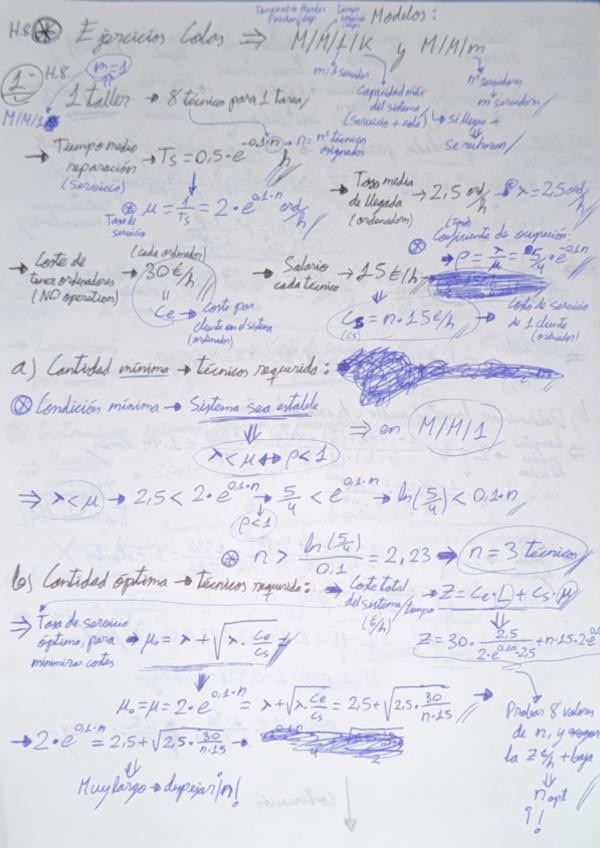 H.8 Ejercicios Colas ⇒ Modelos:
M/M/1/K y M/M/m
m=1 servidor
Capacidad máx del sistema (servicio + cola)
nº servidores
m servidores
se rechazan
1- H.8.
m=1
M/M/1
1 taller → 8 técnicos para 1 tarea
→ Tiempo medio reparación (Servicio) → Ts = 0,5·e^(-0,1·n) h
n = nº técnicos asignados
Tasa de servicio μ = 1/Ts = 2·e^(0,1·n) ord/h
→ Tasa media de llegada (ordenadores) → 2,5 ord/h → λ = 2,5 ord/h
Coeficiente de ocupación:
→ ρ = λ/μ = 5/4·e^(-0,1n)
→ Coste de tener ordenadores (NO operativos) → 30 €/h (cada ordenador)
Ce → coste por cliente en el sistema (ordenador)
→ Salario cada técnico → 15 €/h
Cs = n·15 €/h → Coste de servicio de 1 cliente (ordenador)
(cs)
a) Cantidad mínima → técnicos requerida:
Condición mínima → Sistema sea estable ⇒ en M/M/1
λ < μ ↔ ρ < 1
⇒ λ < μ → 2,5 < 2·e^(0,1·n) → 5/4 < e^(0,1·n) → ln(5/4) < 0,1·n
ρ < 1
n > ln(5/4)/0,1 = 2,23 → n = 3 técnicos
b) Cantidad óptima → técnicos requerida:
→ Coste total del sistema/tiempo (€/h) → Z = Ce·L + Cs·μ
Z = 30·2,5/(2·e^(0,1n)-2,5) + n·15·2·e^(0,1n)
⇒ Tasa de servicio óptima, para minimizar costes → μo = λ + √(λ·Ce/Cs)
μo = μ = 2·e^(0,1·n) = λ + √(λ·Ce/Cs) = 2,5 + √(2,5·30/(n·15))
→ 2·e^(0,1·n) = 2,5 + √(2,5·30/(n·15)) →
Muy largo → despejar n!
Probar 8 valores de n, y escoger la Z €/h + baja
n opt
!!